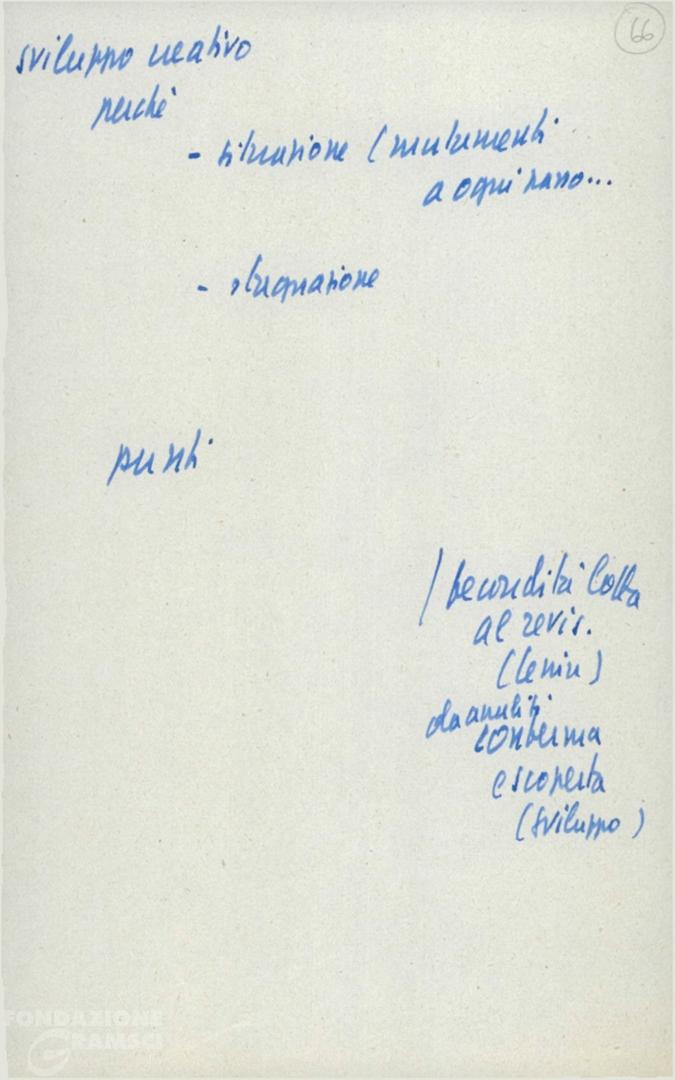 66
sviluppo creativo
perché
- situazione (mutamenti
a ogni passo...
- stagnazione
punti
/ fecondità lotta
al revis.
(Lenin)
da analisi
conferma
e scoperta
(sviluppo)
FONDAZIONE
GRAMSCI